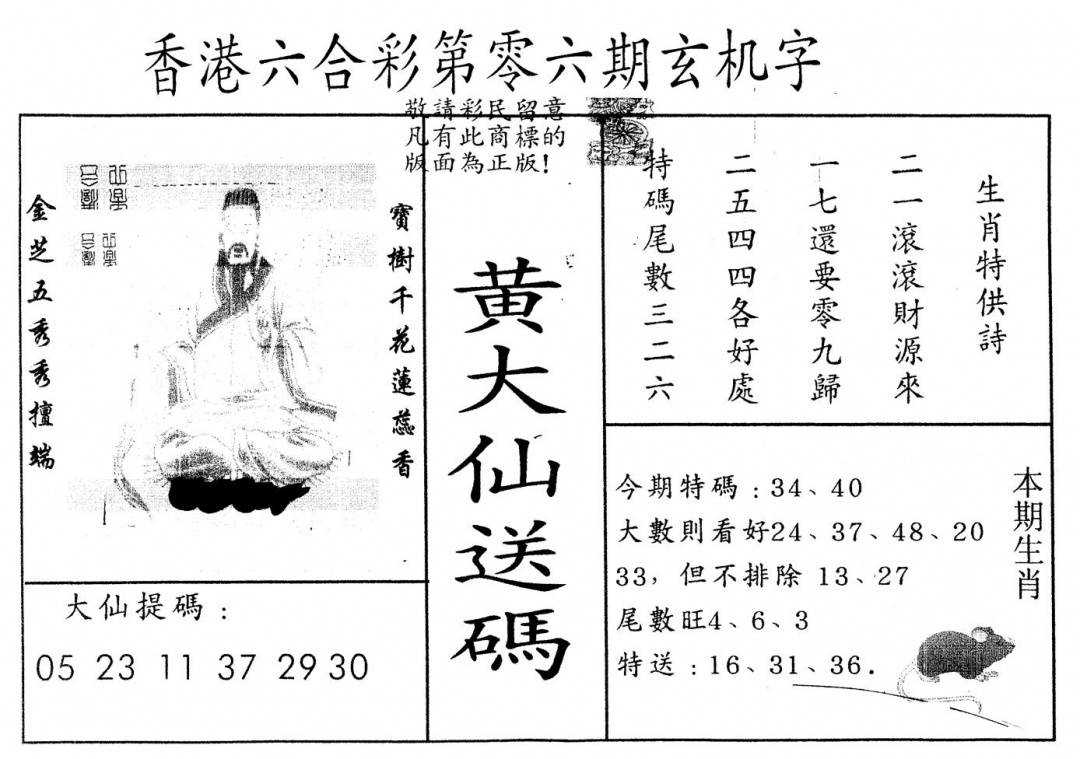 香港六合彩第零六期玄机字
敬請彩民留意
凡有此商標的
版面為正版!
寶樹千花蓮蕊香
金芝五秀秀擅端
大仙提碼：
05 23 11 37 29 30
黄大仙送碼
生肖特供詩
二一滾滾財源來
一七還要零九歸
二五四四各好處
特碼尾數三二六
本期生肖
今期特碼：34、40
大數則看好24、37、48、20
33，但不排除 13、27
尾數旺4、6、3
特送：16、31、36.